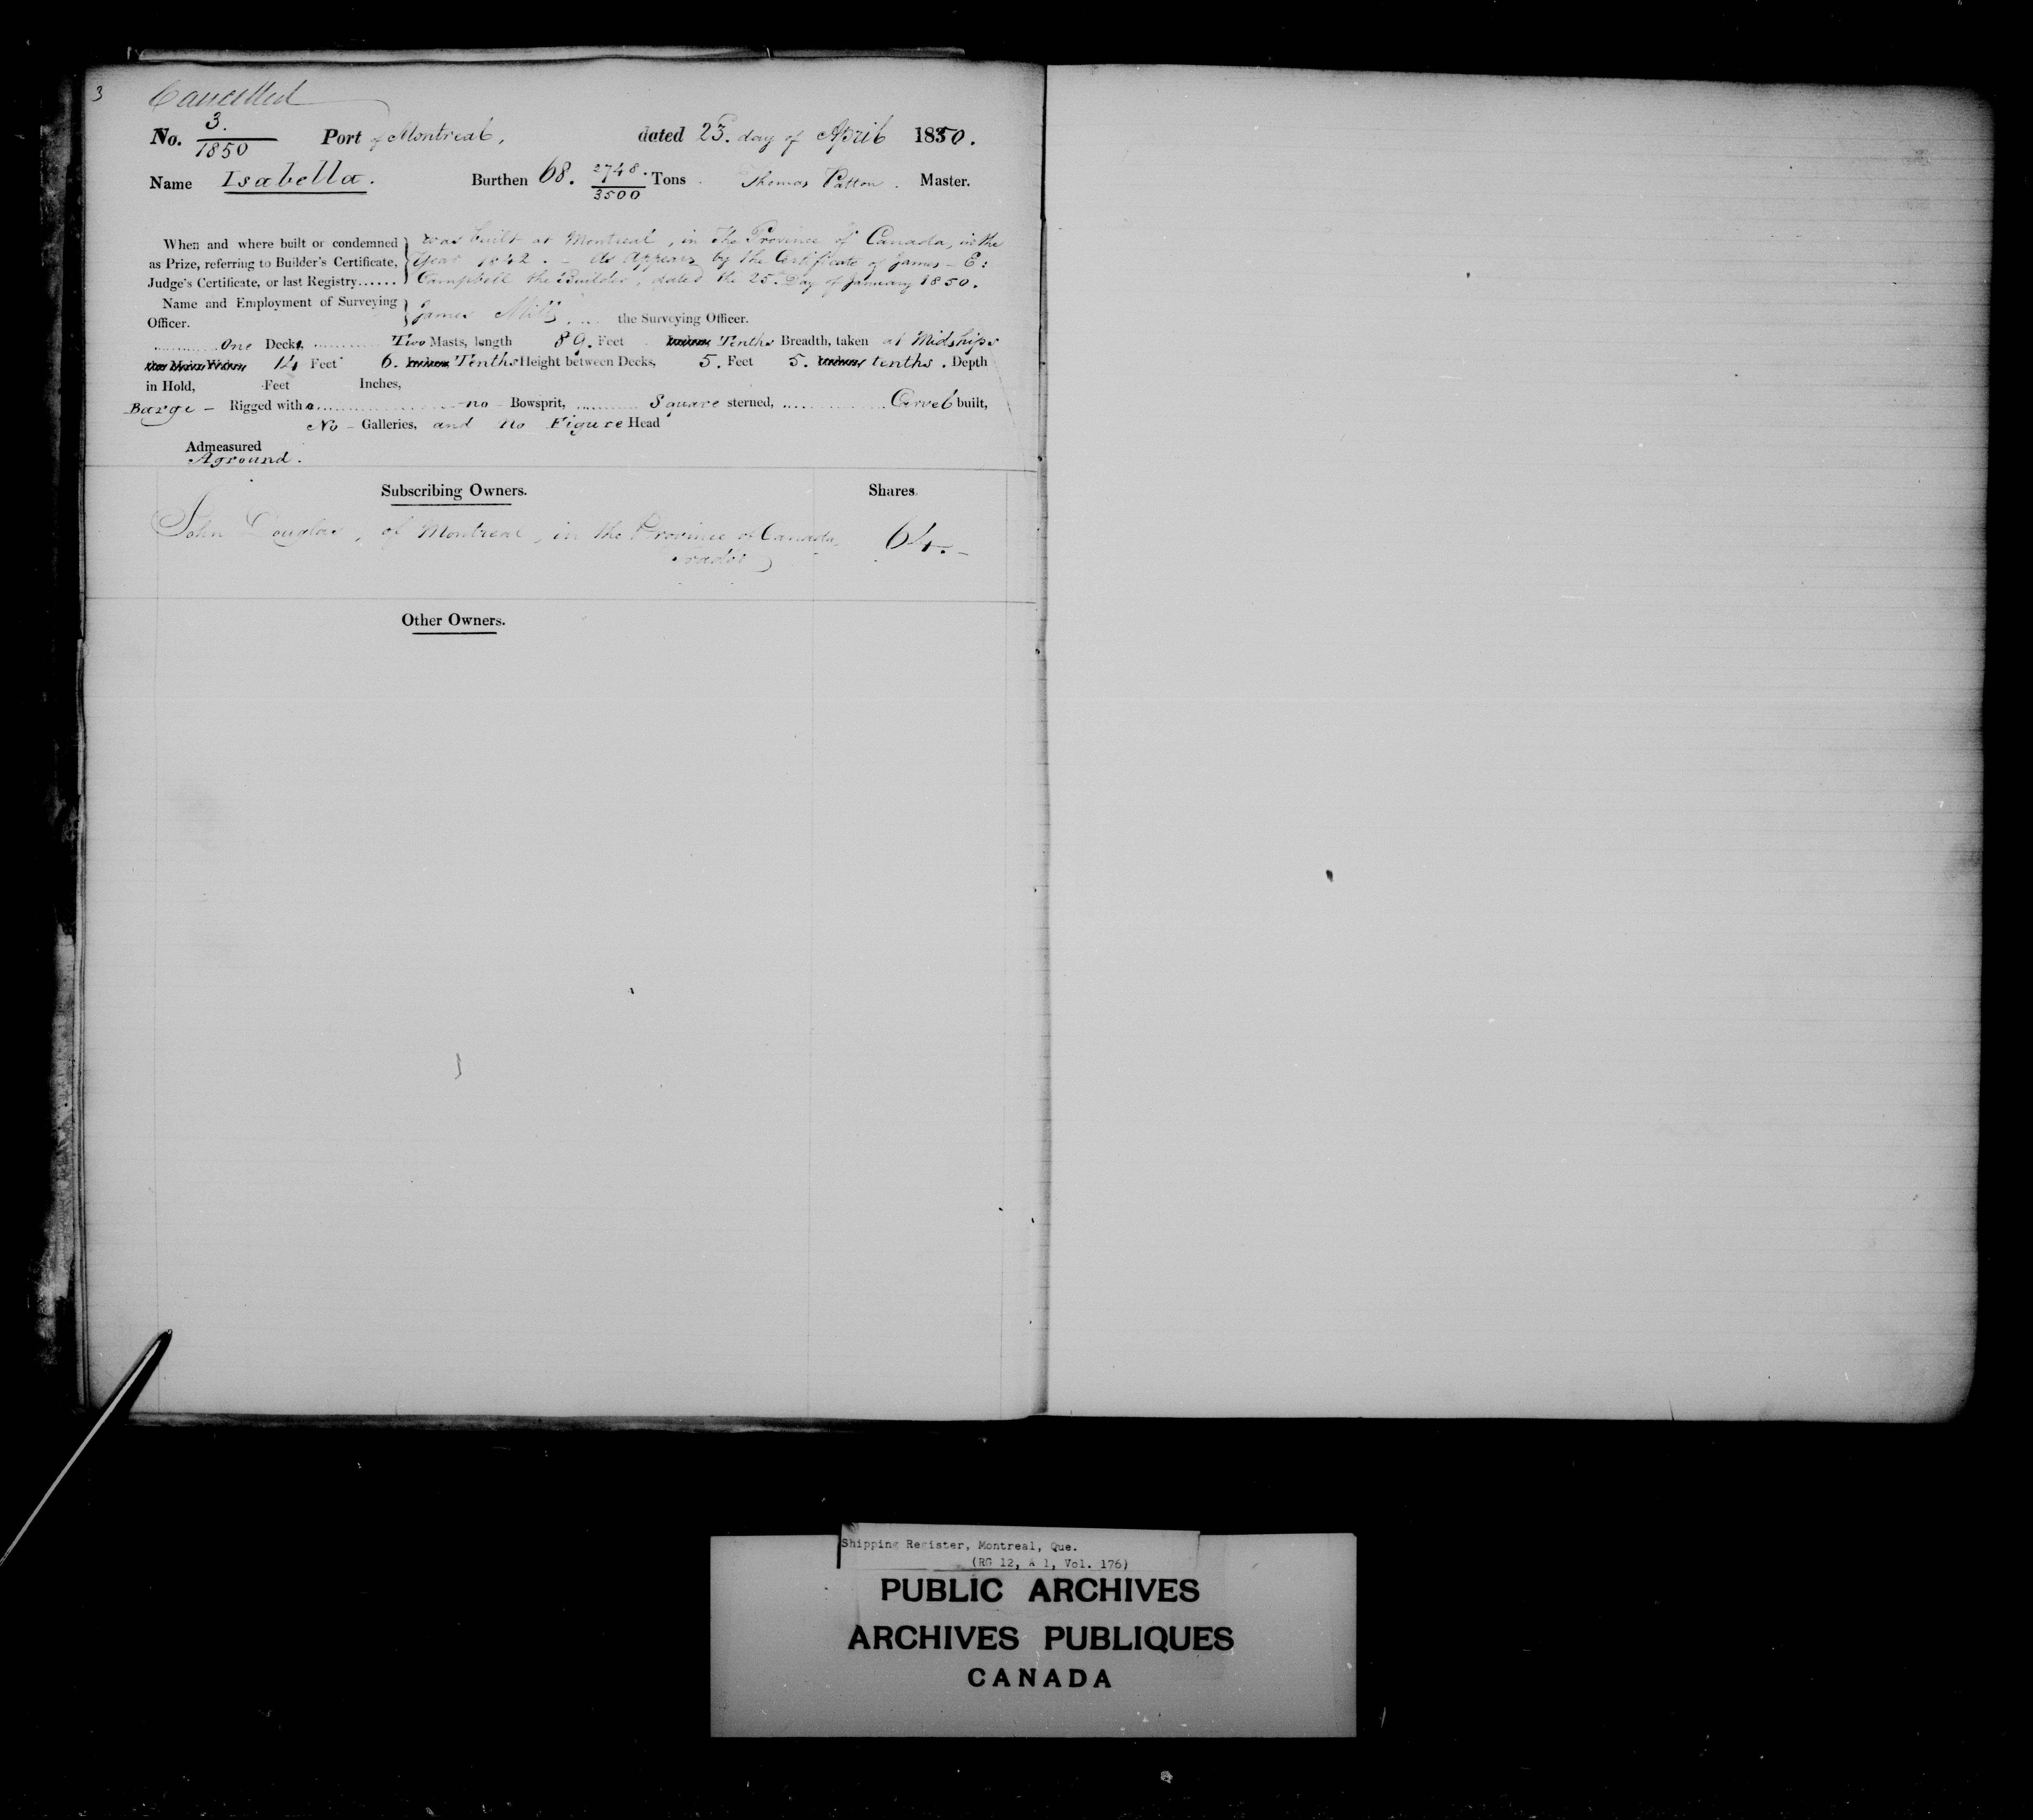 3 Cancelled
No. 3. Port of Montreal, dated 23. day of April 1850.
1850
Name Isabella. Burthen 68. 2748. Tons. Thomas Patton. Master.
3500
When and where built or condemned was built at Montreal, in The Province of Canada, in the
as Prize, referring to Builder's Certificate, Year 1842. - As Appears by the Certificate of James - E:
Judge's Certificate, or last Registry...... Campbell the Builder, dated the 25th Day of January 1850.
Name and Employment of Surveying
Officer. James Mills .... the Surveying Officer.
One Deck, Two Masts, length 89. Feet Tenths Breadth, taken at Midships
14 Feet 6. Tenths Height between Decks, 5. Feet 5. tenths. Depth
in Hold, Feet Inches,
Barge - Rigged with a no - Bowsprit, Square sterned, Carvel built,
No - Galleries, and No Figure Head
Admeasured
Aground.
Subscribing Owners. Shares.
John Douglas, of Montreal, in the Province of Canada, 64.-
Trader
Other Owners.
Shipping Register, Montreal, Que.
(RG 12, A 1, Vol. 176)
PUBLIC ARCHIVES
ARCHIVES PUBLIQUES
CANADA